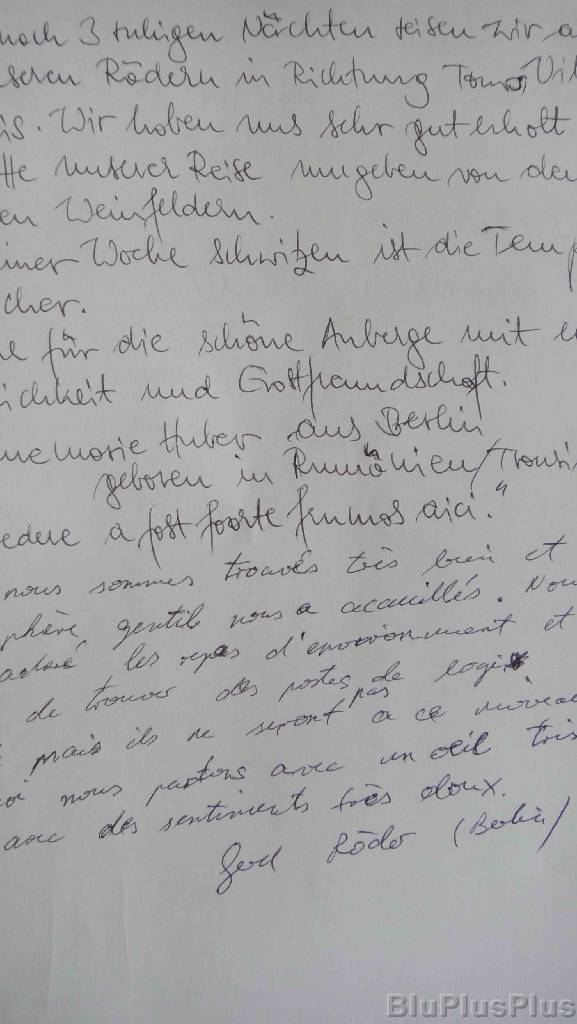 noch 3 ruhigen Nächten reisen wir a
seren Rädern in Richtung Tours, Vil
is. Wir haben uns sehr gut erholt
tte unserer Reise umgeben von de
en Weinfeldern.
iner Woche Schwitzen ist die Temp
cher.
e für die schöne Auberge mit
ichkeit und Gastfreundschaft.
nemarie Huber aus Berlin
geboren in Rumänien/Transi
edere a fost foarte frumos aici."
nous sommes trouvés très bien et
phère gentile nous a acceuillés. Nou
adoré les repas d'environnement et
de trouver des postes de logis
mais ils ne seront pas a ce niveau
oi nous partons avec un oeil tris
avec des sentiments très doux.
Gerd Röder (Berlin)
BluPlusPlus